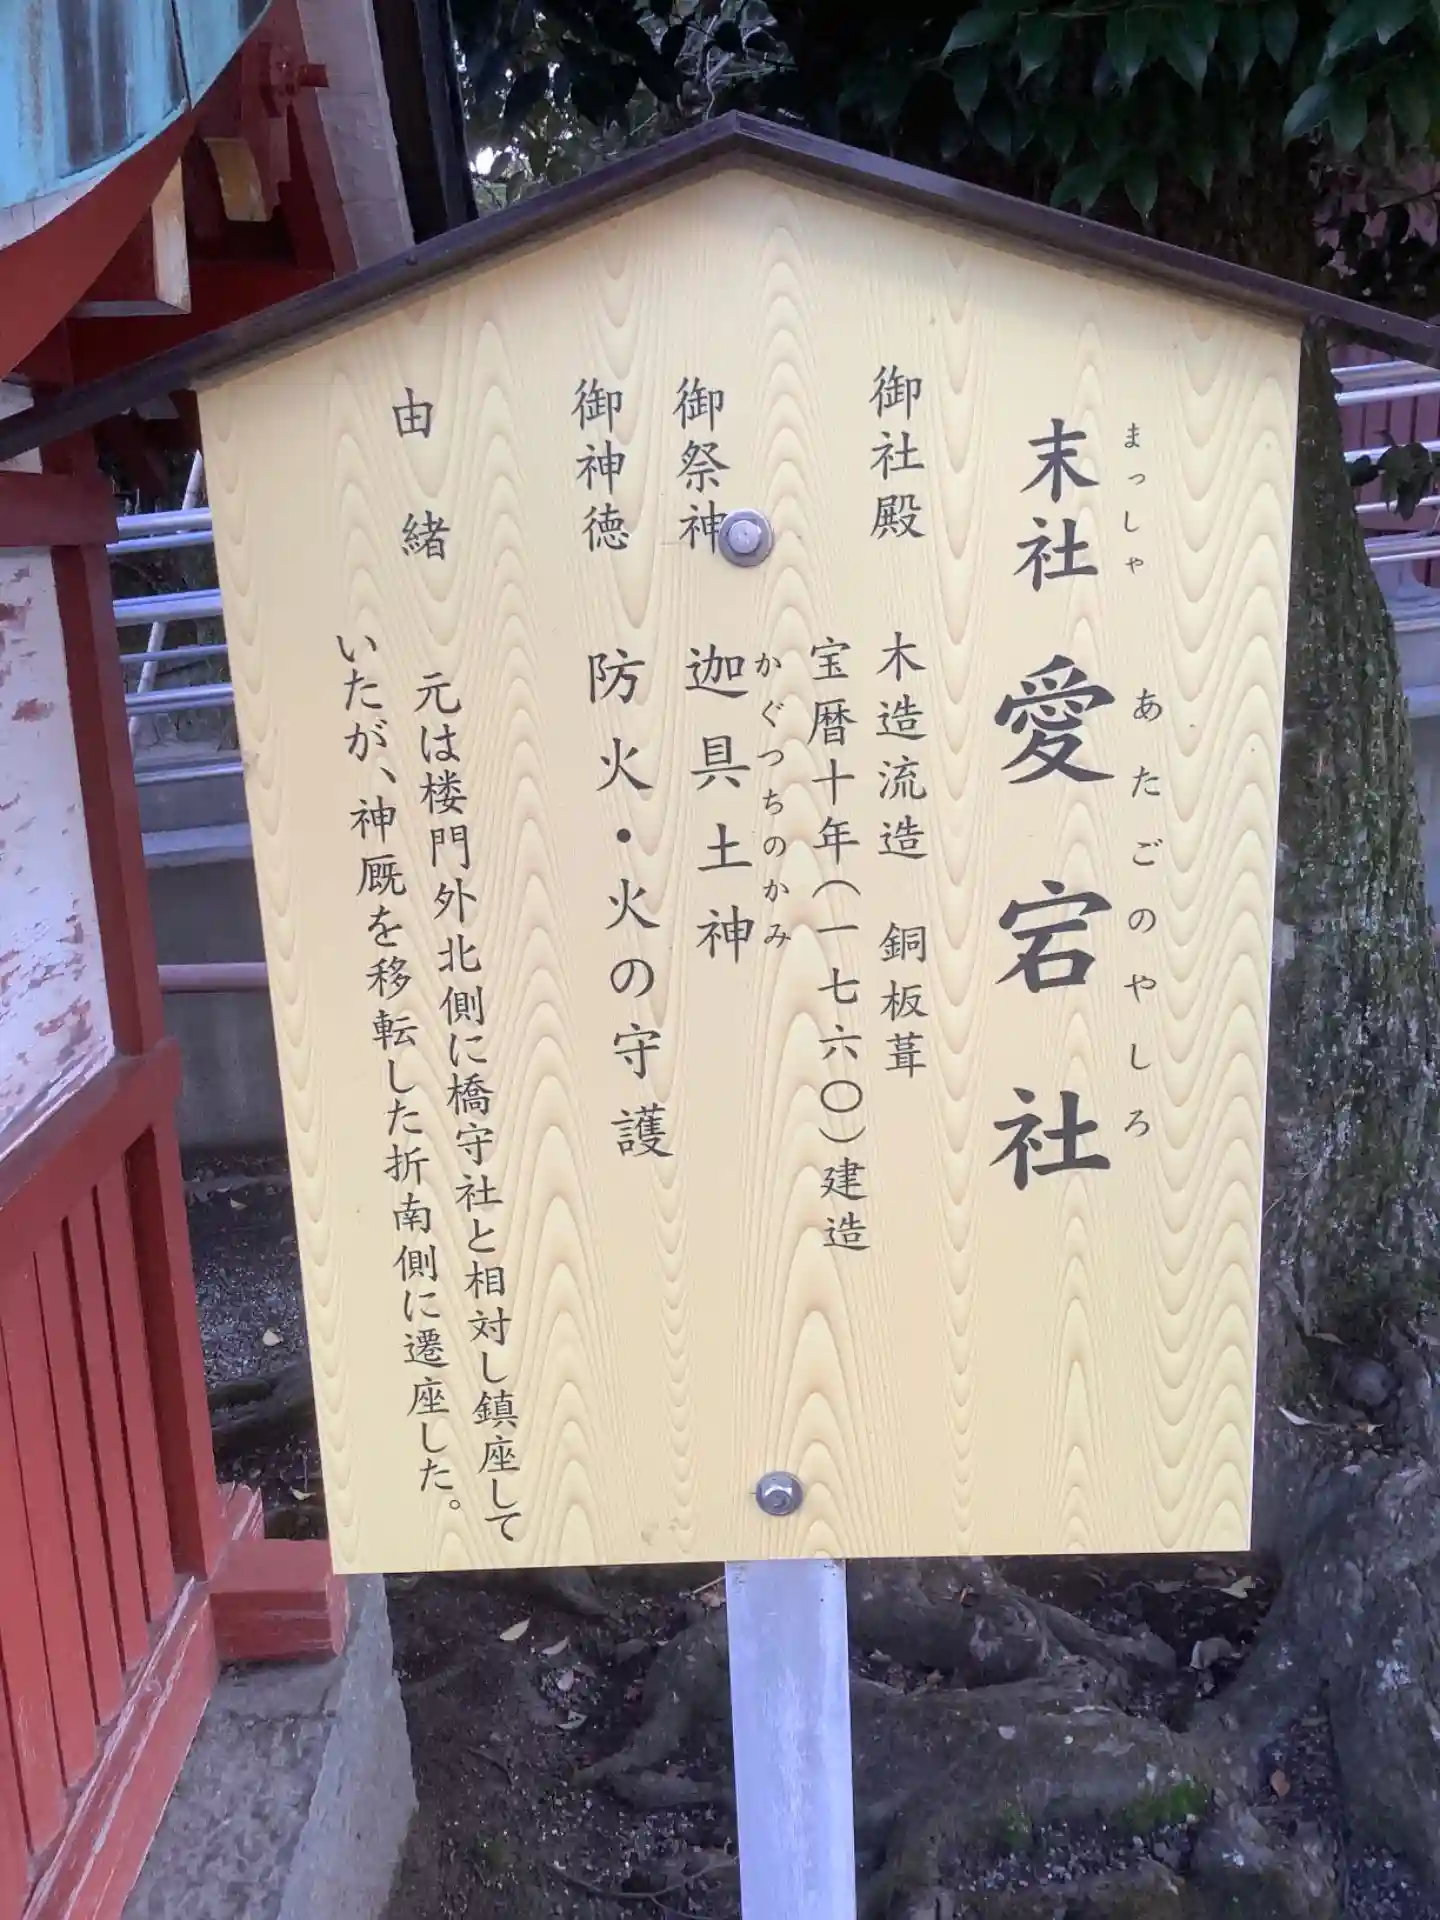 まっしゃ あたごのやしろ
末社 愛宕社
御社殿 木造流造 銅板葺
宝暦十年(一七六〇)建造
かぐつちのかみ
御祭神 迦具土神
御神徳 防火・火の守護
由緒 元は楼門外北側に橋守社と相対し鎮座して
いたが、神厩を移転した折南側に遷座した。